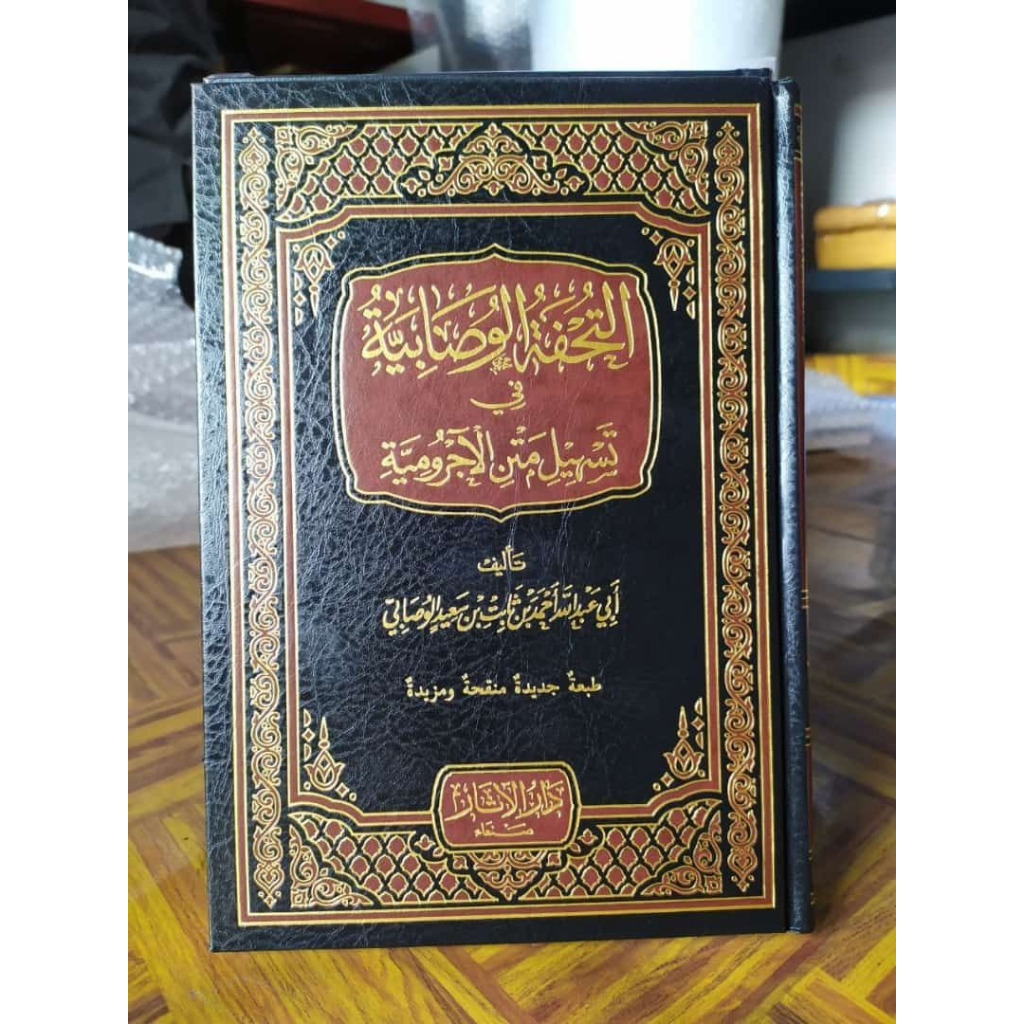 التُّحْفَةُ الْوُصَابِيَّةُ
فِي
تَسْهِيلِ مَتْنِ الْآجُرُّومِيَّةِ
تَأْلِيفُ
أَبِي عَبْدِ اللَّهِ أَحْمَدَ بْنِ ثَابِتِ بْنِ سَعِيدٍ الْوُصَابِيِّ
طبعةٌ جديدةٌ منقحةٌ ومزيدةٌ
دَارُ الْآثَارِ
صَنْعَاء